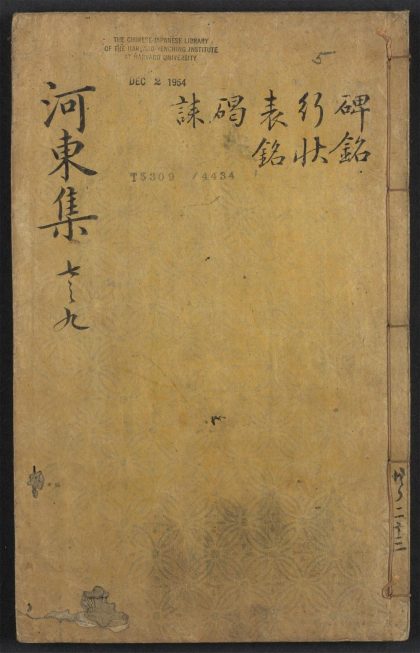 THE CHINESE-JAPANESE LIBRARY
OF THE HARVARD-YENCHING INSTITUTE
AT HARVARD UNIVERSITY
DEC 2 1954
5
碑銘
行狀
表銘
碣
誄
T5309 /4434
河東集
七之九